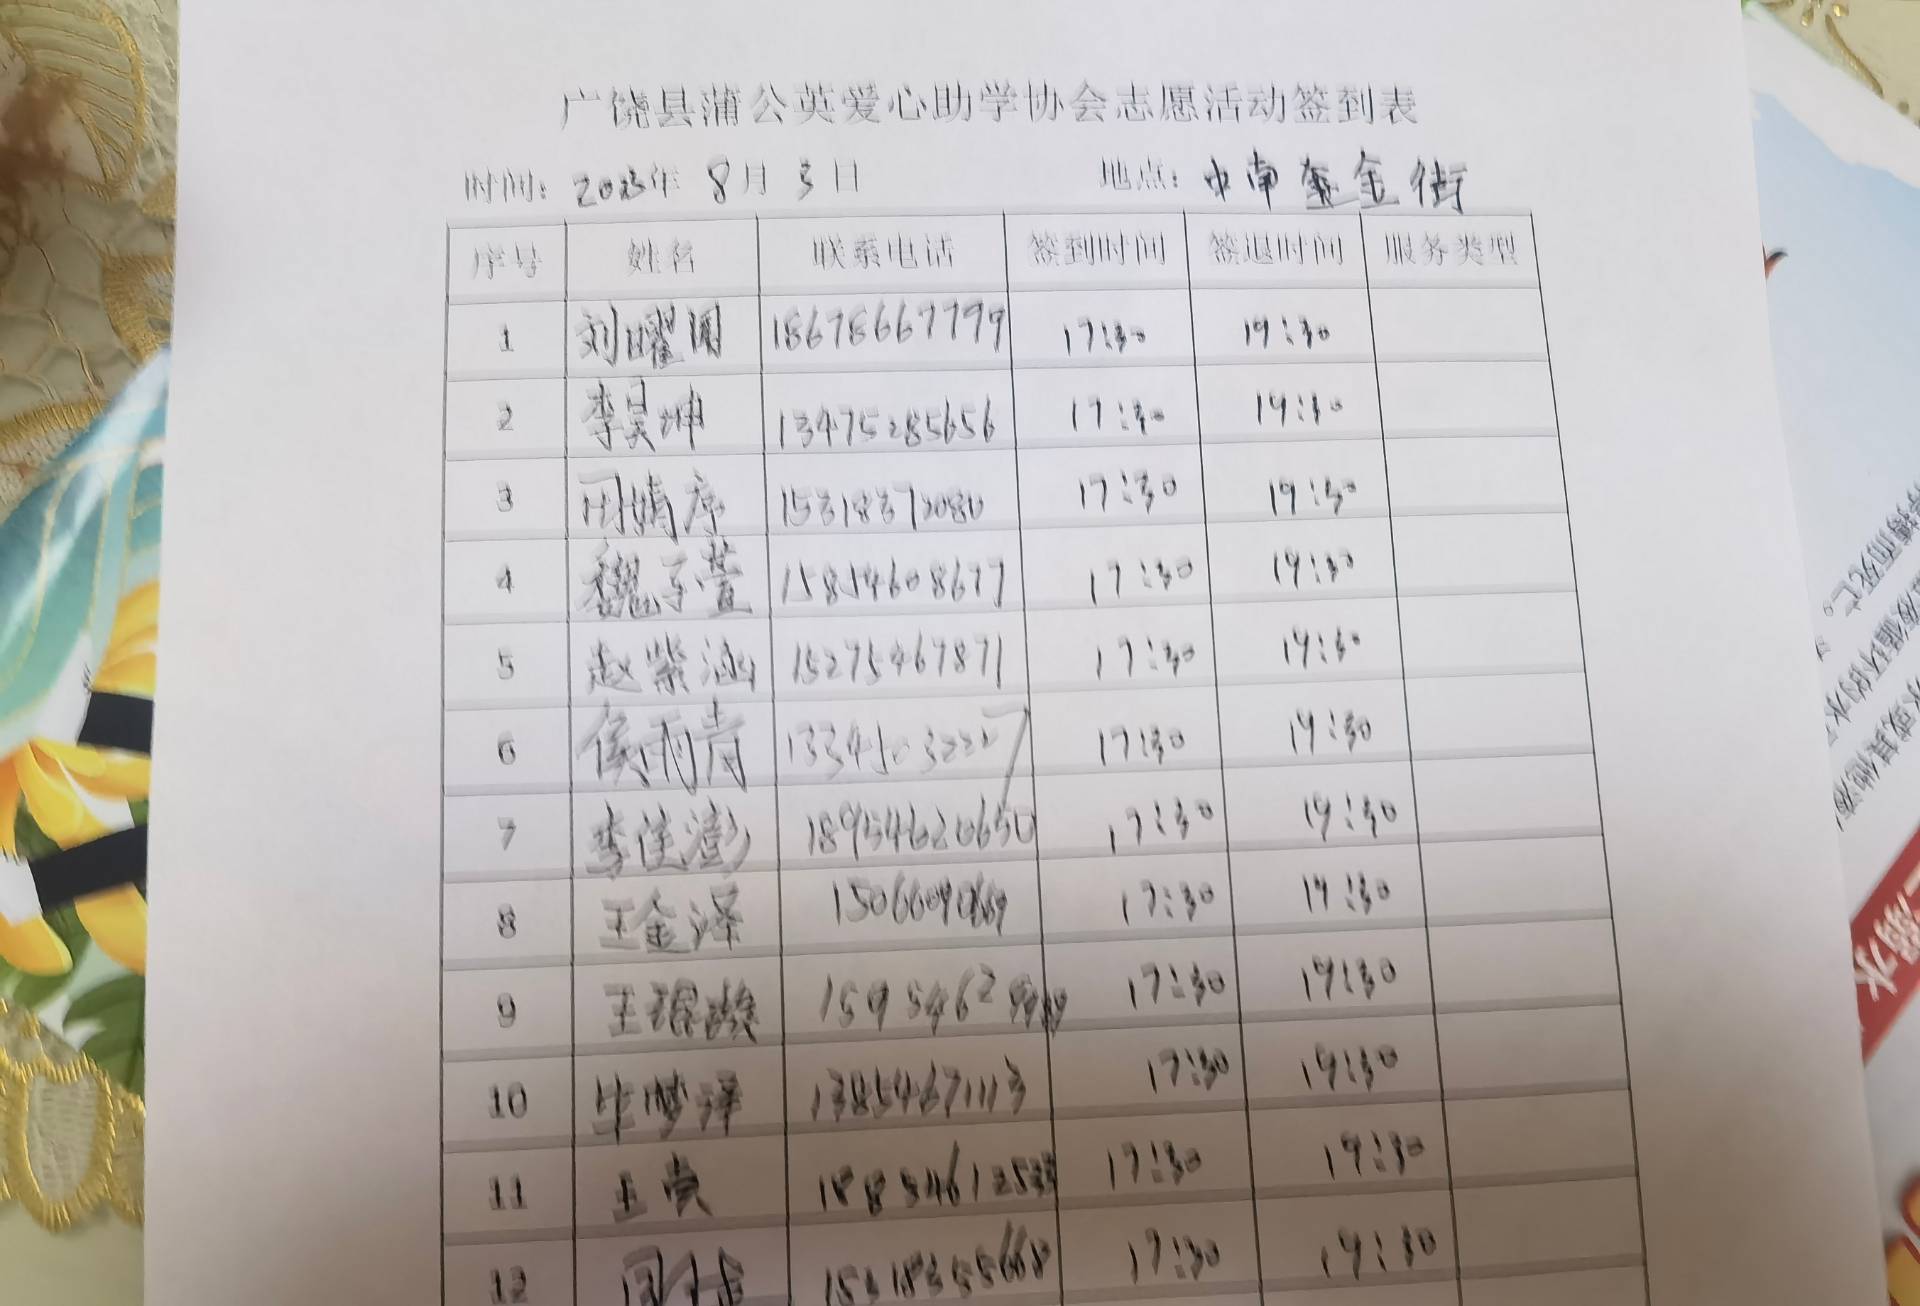 广饶县蒲公英爱心助学协会志愿活动签到表
时间: 2023年 8月 3日 地点: 中南 金街
序号 姓名 联系电话 签到时间 签退时间 服务类型
1 刘曜闻 18678667799 17:30 19:30
2 李昊坤 13475285656 17:30 19:30
3 15318372080 17:30 19:30
4 魏子萱 15854608677 17:30 19:30
5 赵紫涵 15275467871 17:30 19:30
6 侯雨青 17:30 19:30
7 李佳澎 18954620650 17:30 19:30
8 王金泽 17:30 19:30
9 17:30 19:30
10 毕梦泽 13854671113 17:30 19:30
11 17:30 19:30
12 17:30 19:30